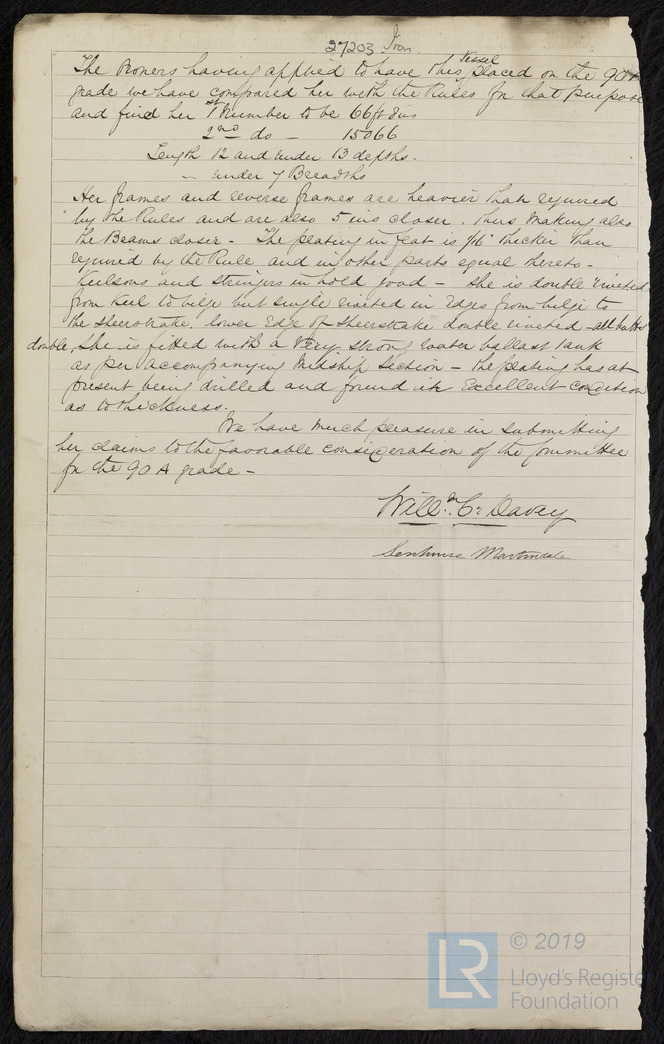 27203 Iron
The Owners having applied to have this Vessel placed on the 90A
grade we have compared her with the Rules for that purpose
and find her 1st Number to be 66ft 8ins
2nd do - 15066
Length 12 and under 13 depths.
" under 7 Breadths
Her frames and reverse frames are heavier than required
by the Rules and are also 5 ins closer. thus making also
the Beams closer - The plating in feat is 1/16" thicker than
required by the Rule and in other parts equal thereto -
Keelsons and stringers in hold good - She is double riveted
from Keel to bilge but single riveted in Edges from bilge to
the sheerstrake, lower Edge of Sheerstrake double riveted - all butts
double, She is fitted with a Very strong water ballast tank
as per accompanying Midship Section - the plating has at
present being drilled and found in Excellent condition
as to thickness.
We have much pleasure in submitting
her claims to the favorable consideration of the Committee
for the 90 A grade -
Willm. C. Davey
Senhouse Martindale
LR © 2019
Lloyd's Register
Foundation